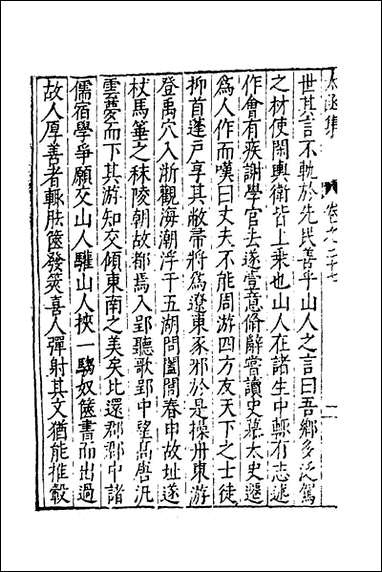 太函集 卷之二十七 一
世其言不軌於先民善乎山人之言曰吾鄉多泛駕
之材使閑輿衛皆上乘也山人在諸生中輒有志述
作會有疾謝學官去遂壹意脩辭嘗讀史慕太史遷
爲人作而嘆曰丈夫不能周游四方友天下之士徒
抑首蓬戶享其敝帚將爲遼東豕邪於是操舟東游
登禹穴入浙觀海潮浮于五湖問闔閭春中故址遂
杖馬箠之秣陵朝故都焉入郢聽歌郢中望高唐汎
雲夢而下其游知交傾東南之美矣比還郡郡中諸
儒宿學爭願交山人驩山人挾一騶奴篋書而出過
故人厚善者輒胠篋發筴喜人彈射其文猶能推轂